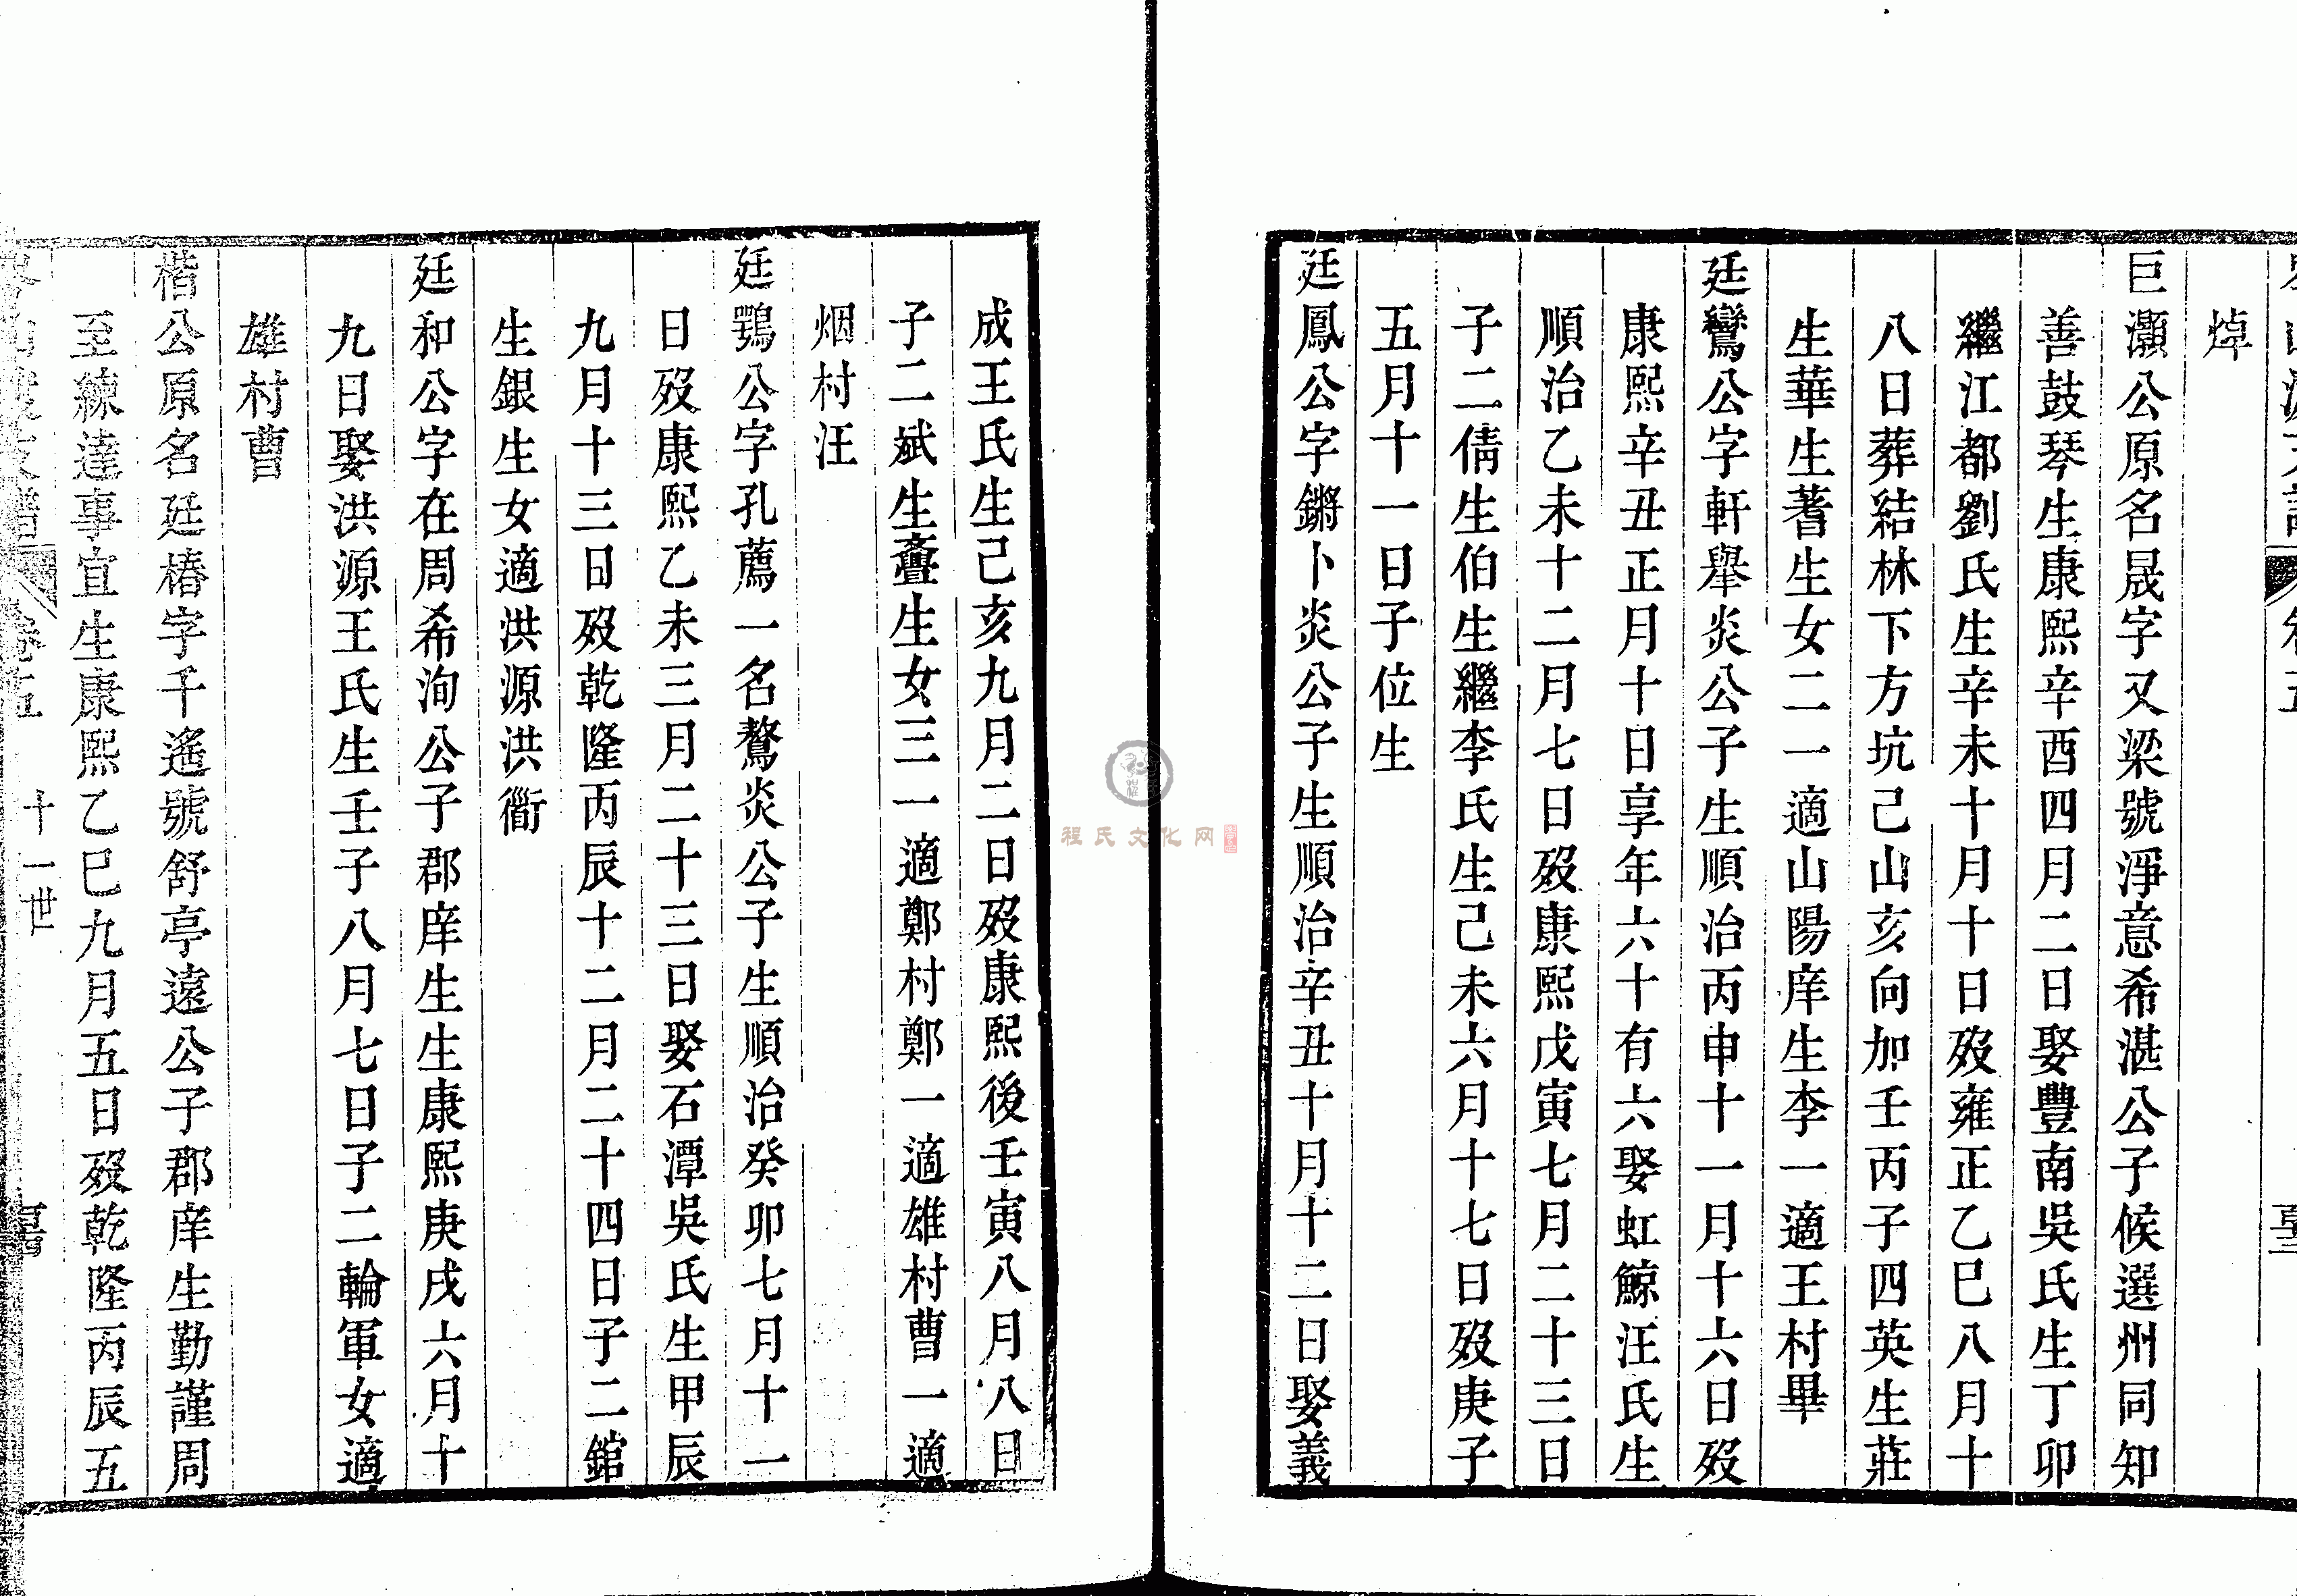 焯
巨灝公原名晟字又梁號淨意希湛公子候選州同知
善鼓琴生康熙辛酉四月二日娶豐南吳氏生丁卯
繼江都劉氏生辛未十月十日歿雍正乙巳八月十
八日葬結林下方坑己山亥向加壬丙子四英生莊
生華生蓍生女二一適山陽庠生李一適王村畢
廷鸞公字軒舉炎公子生順治丙申十一月十六日歿
康熙辛丑正月十日享年六十有六娶虹鯨汪氏生
順治乙未十二月七日歿康熙戊寅七月二十三日
子二倩生伯生繼李氏生己未六月十七日歿庚子
五月十一日子位生
廷鳳公字鏘卜炎公子生順治辛丑十月十二日娶義
成王氏生己亥九月二日歿康熙後壬寅八月八日
子二斌生亹生女三一適鄭村鄭一適雄村曹一適
烟村汪
廷鶚公字孔薦一名鷔炎公子生順治癸卯七月十一
日歿康熙乙未三月二十三日娶石潭吳氏生甲辰
九月十三日歿乾隆丙辰十二月二十四日子二錧
生銀生女適洪源洪衜
廷和公字在周希洵公子郡庠生生康熙庚戌六月十
九日娶洪源王氏生壬子八月七日子二輪軍女適
雄村曹
楷公原名廷椿字千遙號舒亭遠公子郡庠生勤謹周
至練達事宜生康熙乙巳九月五日歿乾隆丙辰五
卷五
十一世
程氏文化网